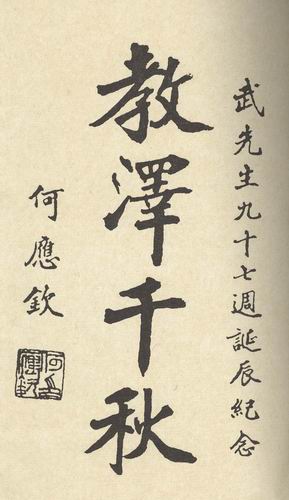 武先生九十七週誕辰紀念
教澤千秋
何應欽
何應欽